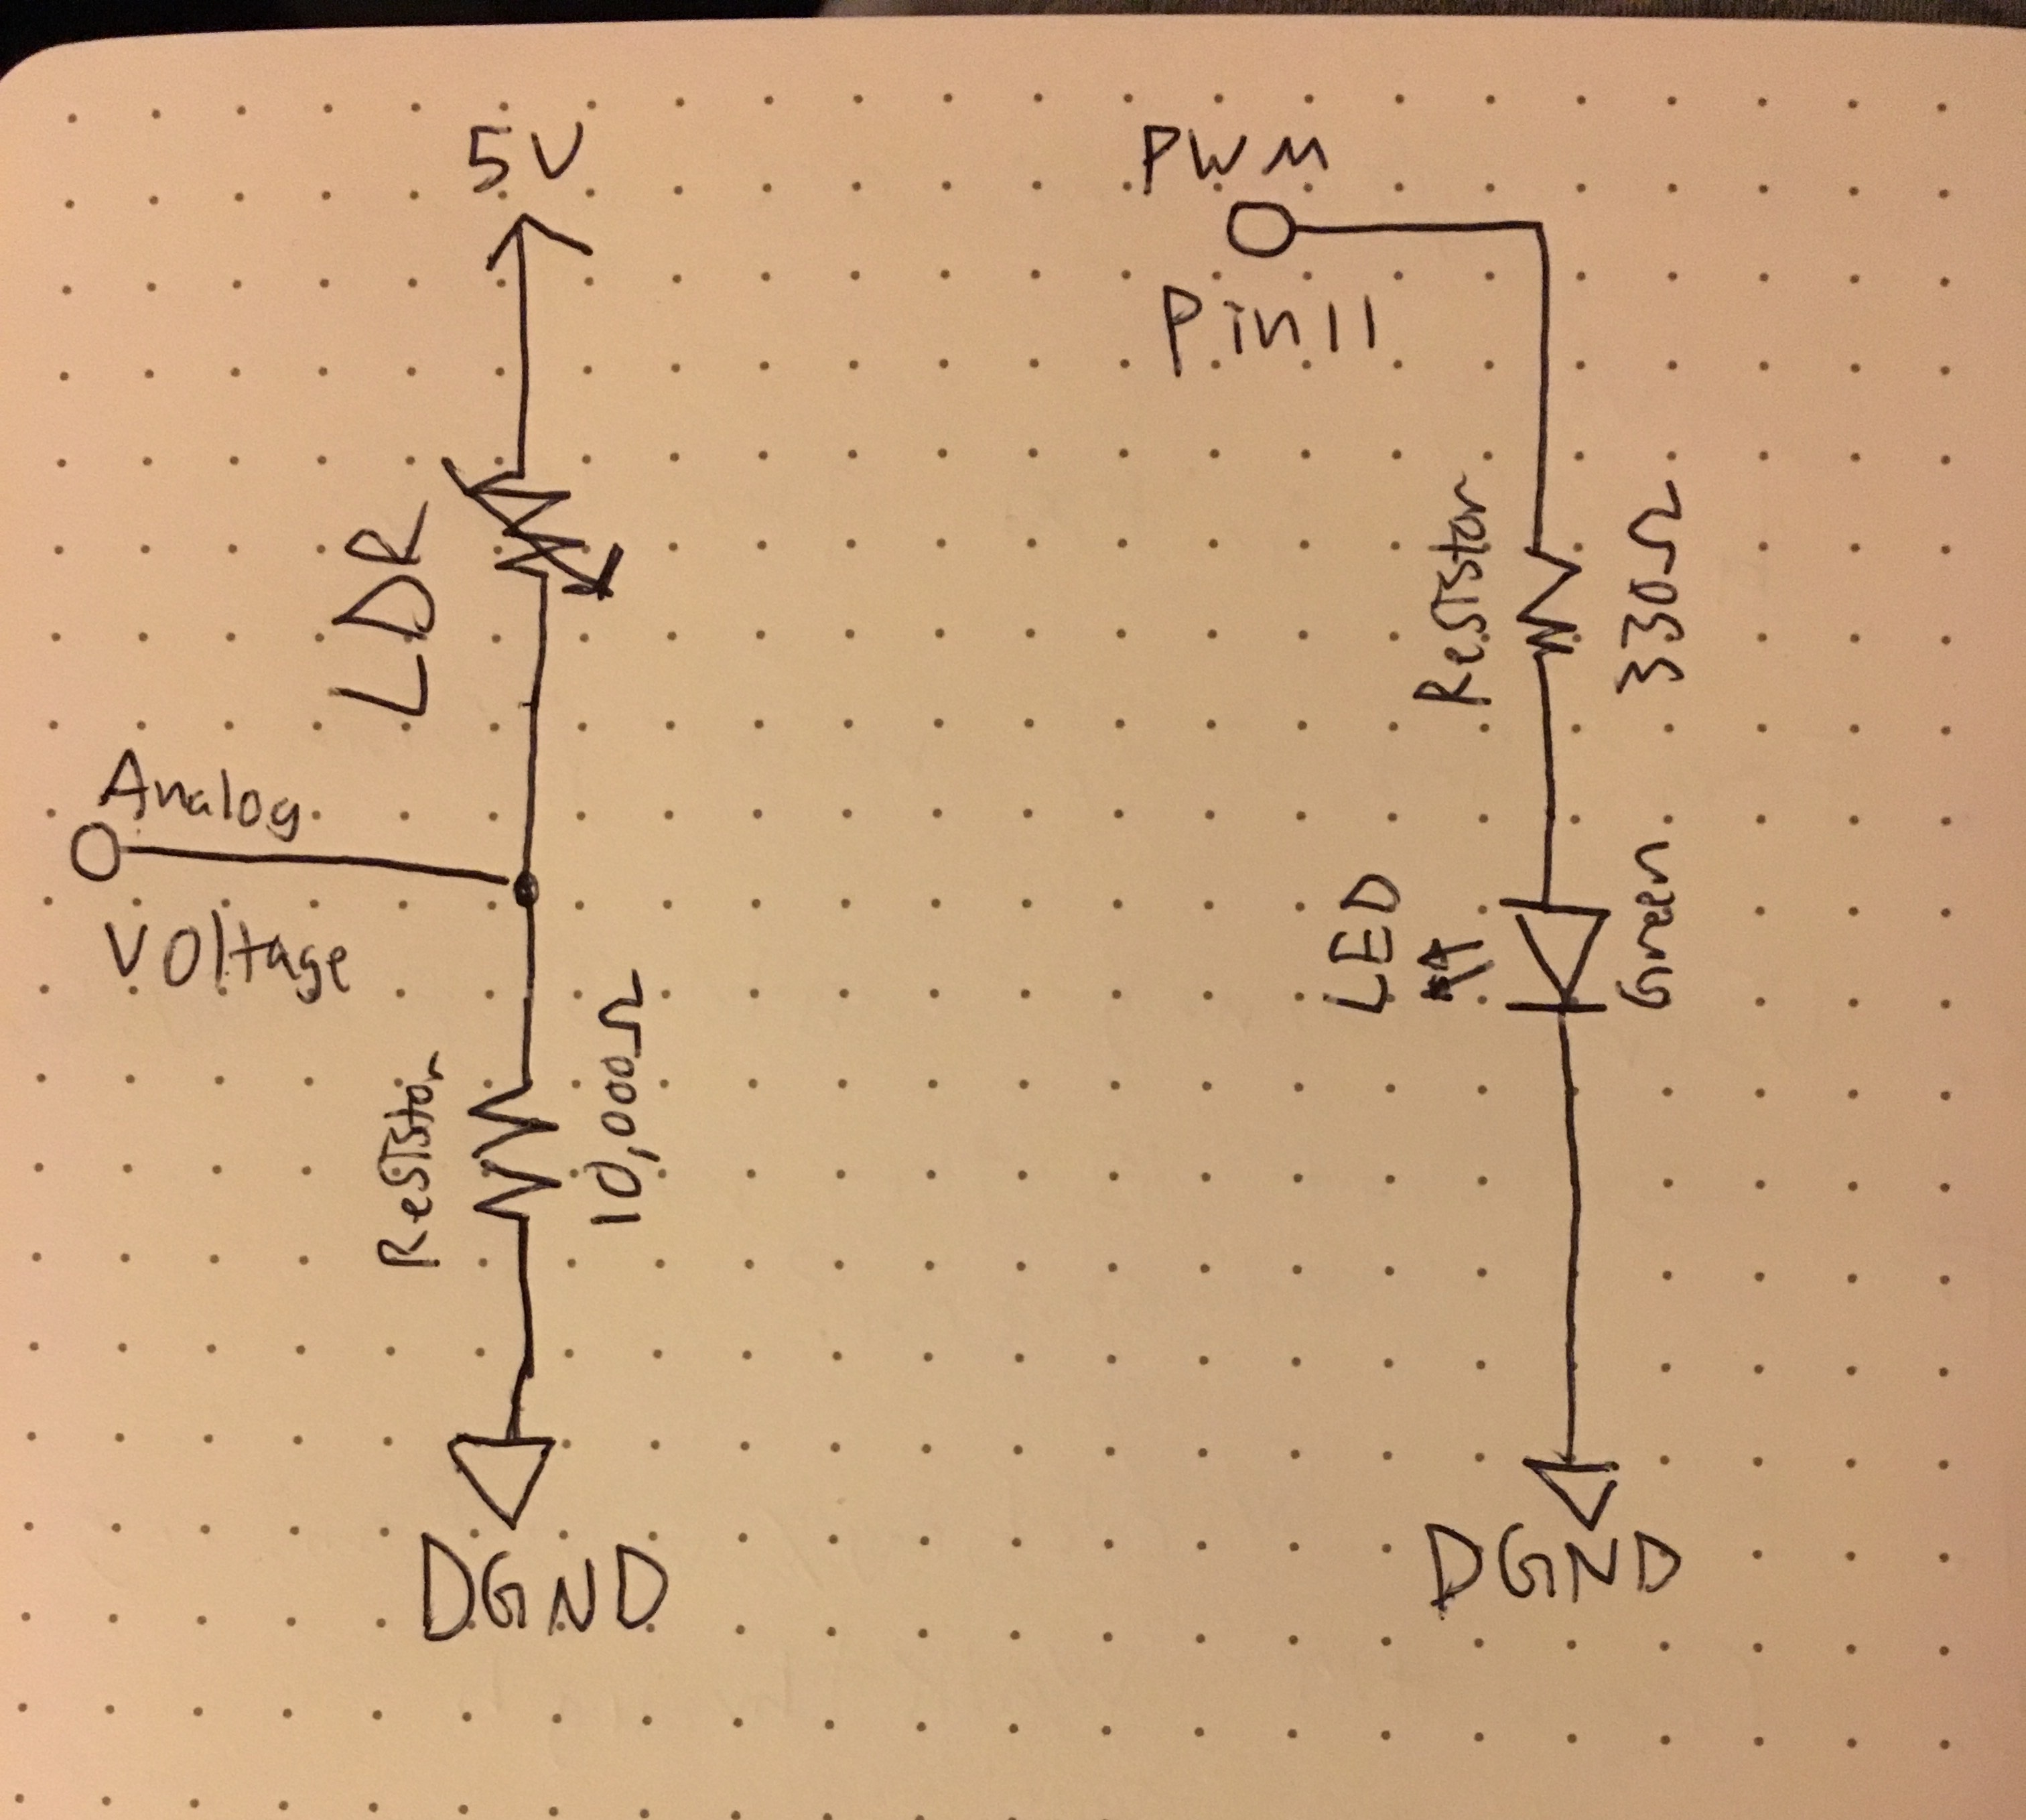 5V
LDR
Analog
Voltage
Resistor
10,000Ω
DGND
PWM
Pin 11
Resistor
330Ω
LED
Green
DGND